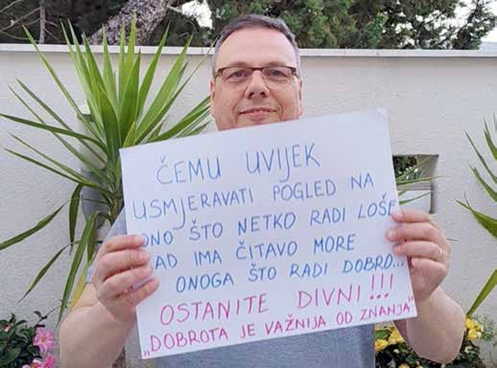 ČEMU UVIJEK
USMJERAVATI POGLED NA
ONO ŠTO NETKO RADI LOŠE
KAD IMA ČITAVO MORE
ONOGA ŠTO RADI DOBRO...
OSTANITE DIVNI!!!
"DOBROTA JE VAŽNIJA OD ZNANJA"